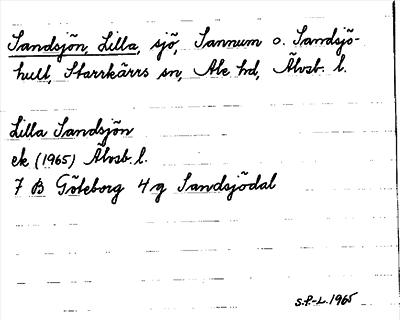 Sandsjön, Lilla, sjö, Sannum o. Sandsjö-
hult, Starrkärrs sn, Ale hd, Älvsb. l.
Lilla Sandsjön
ek (1965) Älvsb. l.
7 B Göteborg 4 g Sandsjödal
S.P.-L. 1965